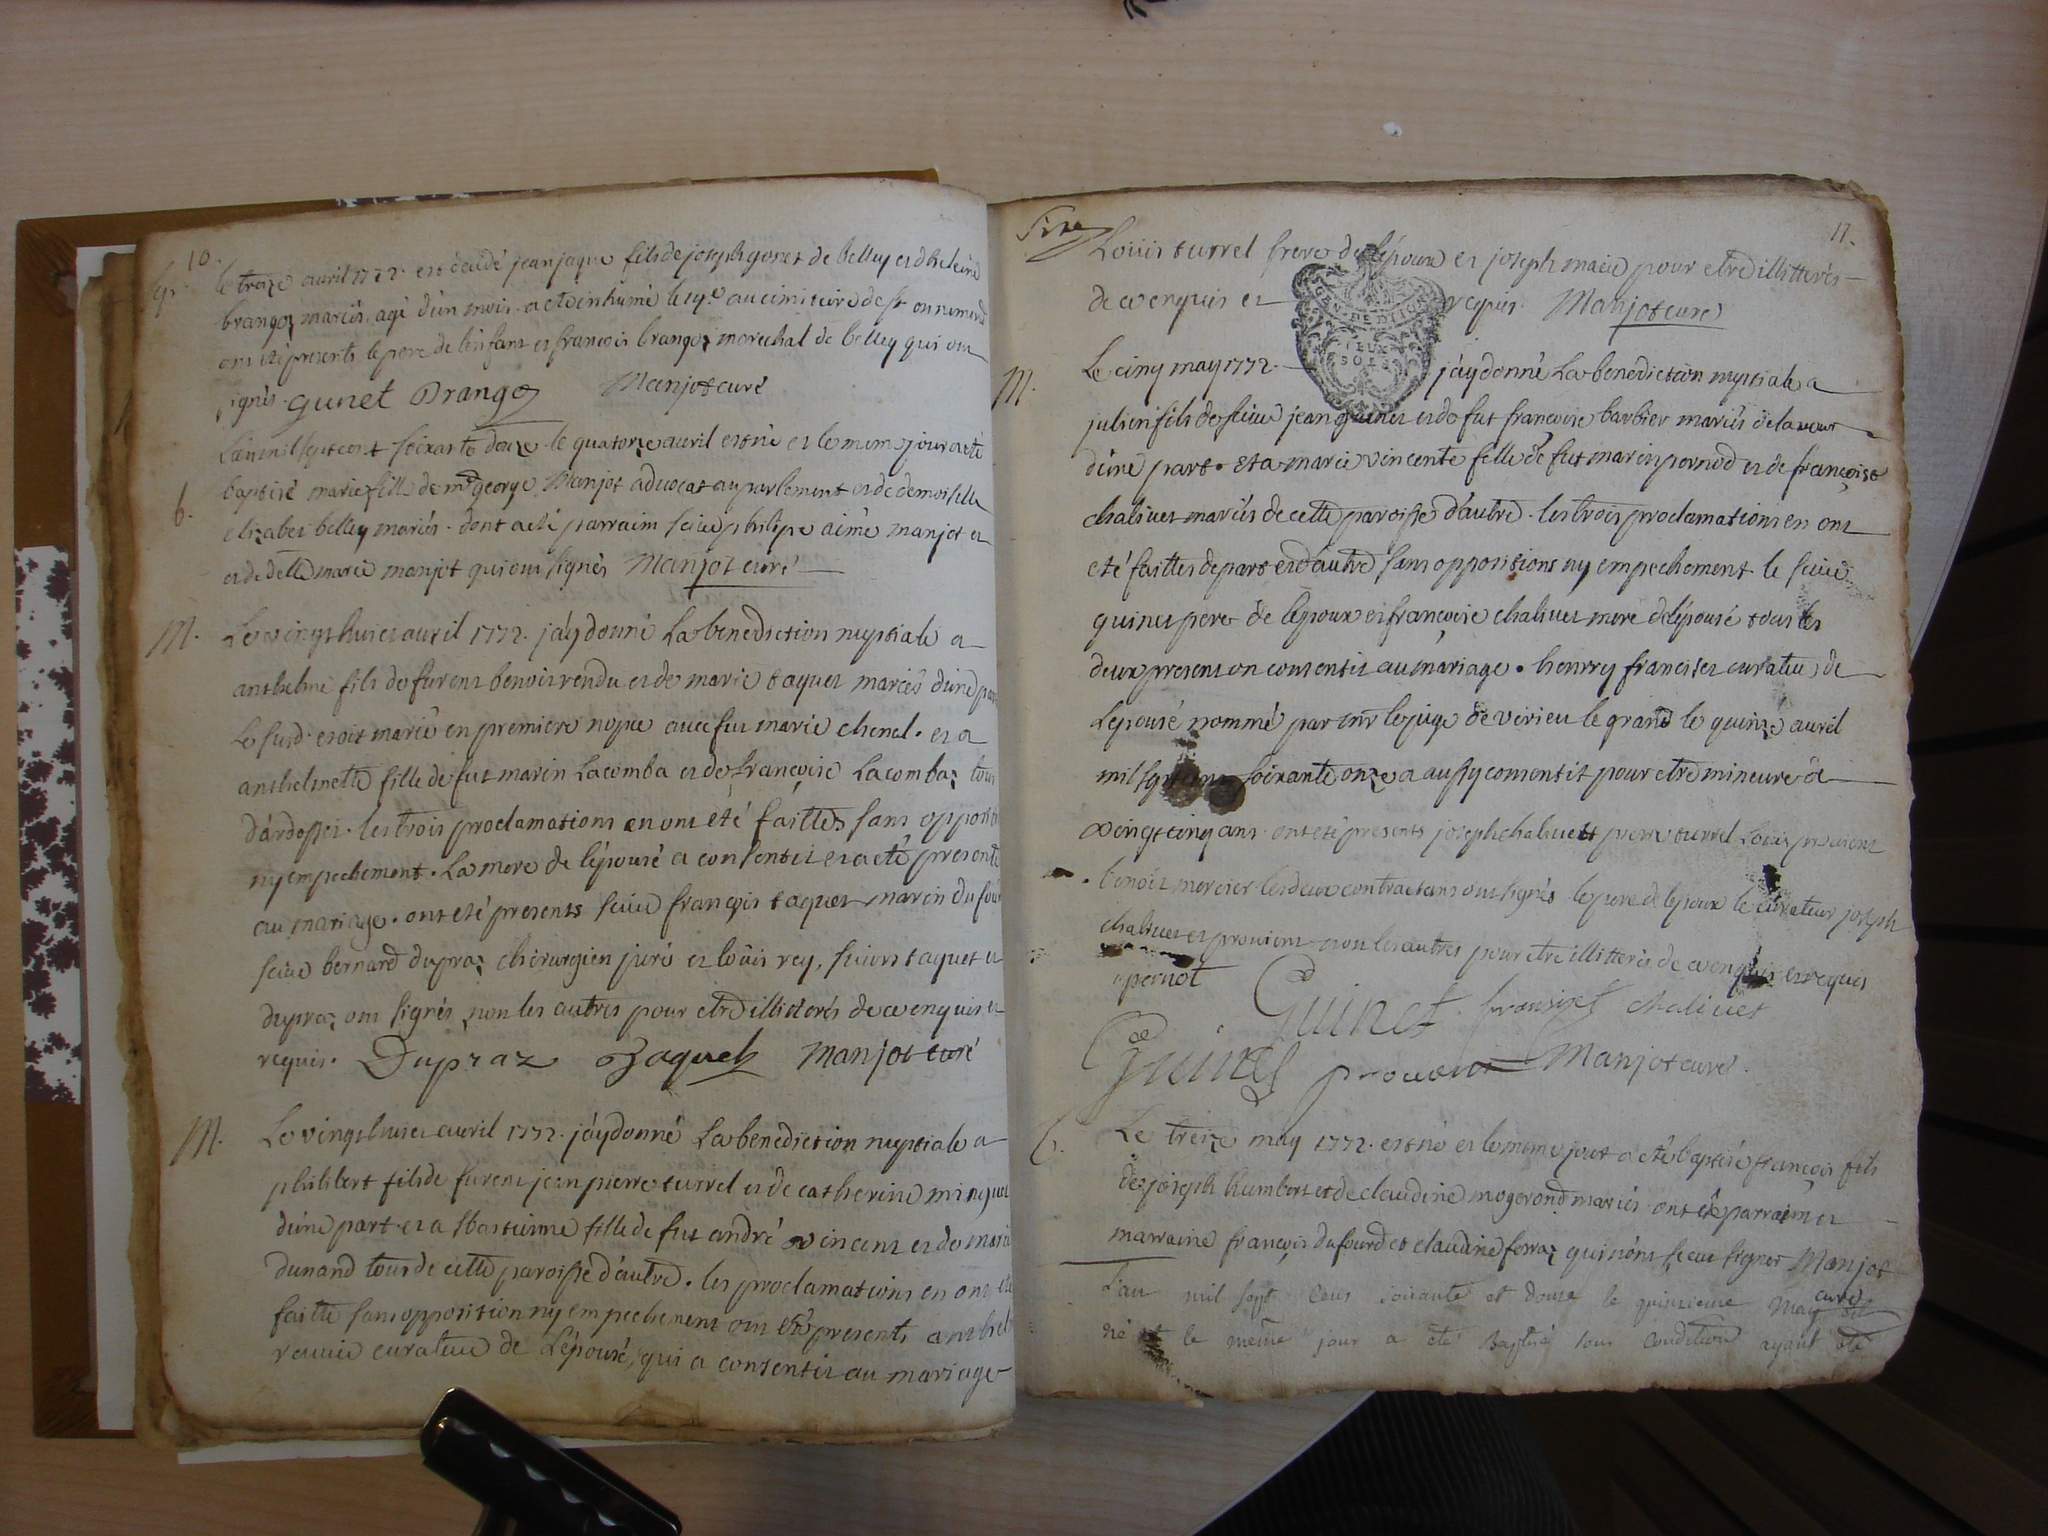 10.
le treize avril 1772. est decedé jean jaque fils de joseph gonet de belley et d'heleine
brangoz mariés, agé d'un mois. a eté inhumé au cimitiere de
ont été presents le pere de l'enfant et françois brangoz marechal de belley qui ont
signés. gunet Brangoz Manjot curé
L'an mil sept cent soixante douze. le quatorze avril est né et le meme jour a eté
b.
baptisé marie fille de mr george Manjot advocat au parlement et de demoiselle
elizabet belley mariés. dont a eté parrain philipe aimé manjot et
et de delle marie manjot qui ont signés Manjot curé
M. Le vingt huict avril 1772. j'ay donné La benediction nuptiale a
anthelme fils de furent benoit rendu et de marie taquet mariés d'une part
Le susd. etoit marié en premiere nopce avec fut marie chenel. et a
anthelmette fille de fut marin Lacomba et de françoise Lacombaz tous
d'ardosset. les trois proclamations en ont eté faittes sans opposit
ny empechement. La mere de l'épousé a consentit et a eté presente
au mariage. ont eté presents françois taquet marin du four
bernard dupraz chirurgien juré et loüis rey, taquet et
dupraz ont signés, non les autres pour etre illiterés de ce enquis et
requis. Dupraz Taquet Manjot curé
M. Le vingt huict avril 1772. j'ay donné La benediction nuptiale a
philibert fils de furent jean pierre turrel et de catherine minguet
d'une part et a fille de fut andré vincent et de marie
dunand tous de cette paroisse d'autre. les proclamations en ont eté
faitte sans opposition ny empechement ont eté presents anthel
curateur de L'épousé, qui a consentit au mariage
11.
Loüis turrel frere de l'époux et joseph pour etre illitterés
de ce enquis et requis. Manjot curé
GEN. DE DIJON
DEUX SOLS
M. Le cinq may 1772. j'ay donné La benediction nuptiale a
julien fils de jean guinet et de fut françoise barbier mariés de
d'une part. et a marie vincente fille de fut marin pernod et de françoise
chalivet mariés de cette paroisse d'autre. les trois proclamations en ont
eté faittes de part et d'autre sans oppositions ny empechement le
guinet pere de l'epoux et françoise chalivet mere de l'épousé tous les
deux present on consentit au mariage. henrry franciset curateur de
Lepousé nommé par mr le juge de virieu le grand le quinze avril
mil sept cent soixante onze a aussy consentit pour etre mineure de
vingt cinq ans. ont eté presents joseph chalivet pierre turrel Loüis provient
benoit mercier les deux contractans ont signés le pere de lepoux le curateur joseph
chalivet et provient non les autres pour etre illitterés de ce enquis et requis
pernot Guinet. fransizet chalivet
Guinet Manjot curé.
b. Le treize may 1772. est né et le meme jour a eté baptisé françois fils
de joseph humbert et de claudine mogerond mariés ont eté parrain et
marraine françois dufourd et claudine ferraz qui n'ont sceu signer Manjot
curé
L'an mil sept cens soixante et douze le quinzieme May est
né et le même jour a été Baptisé sous condition ayant été